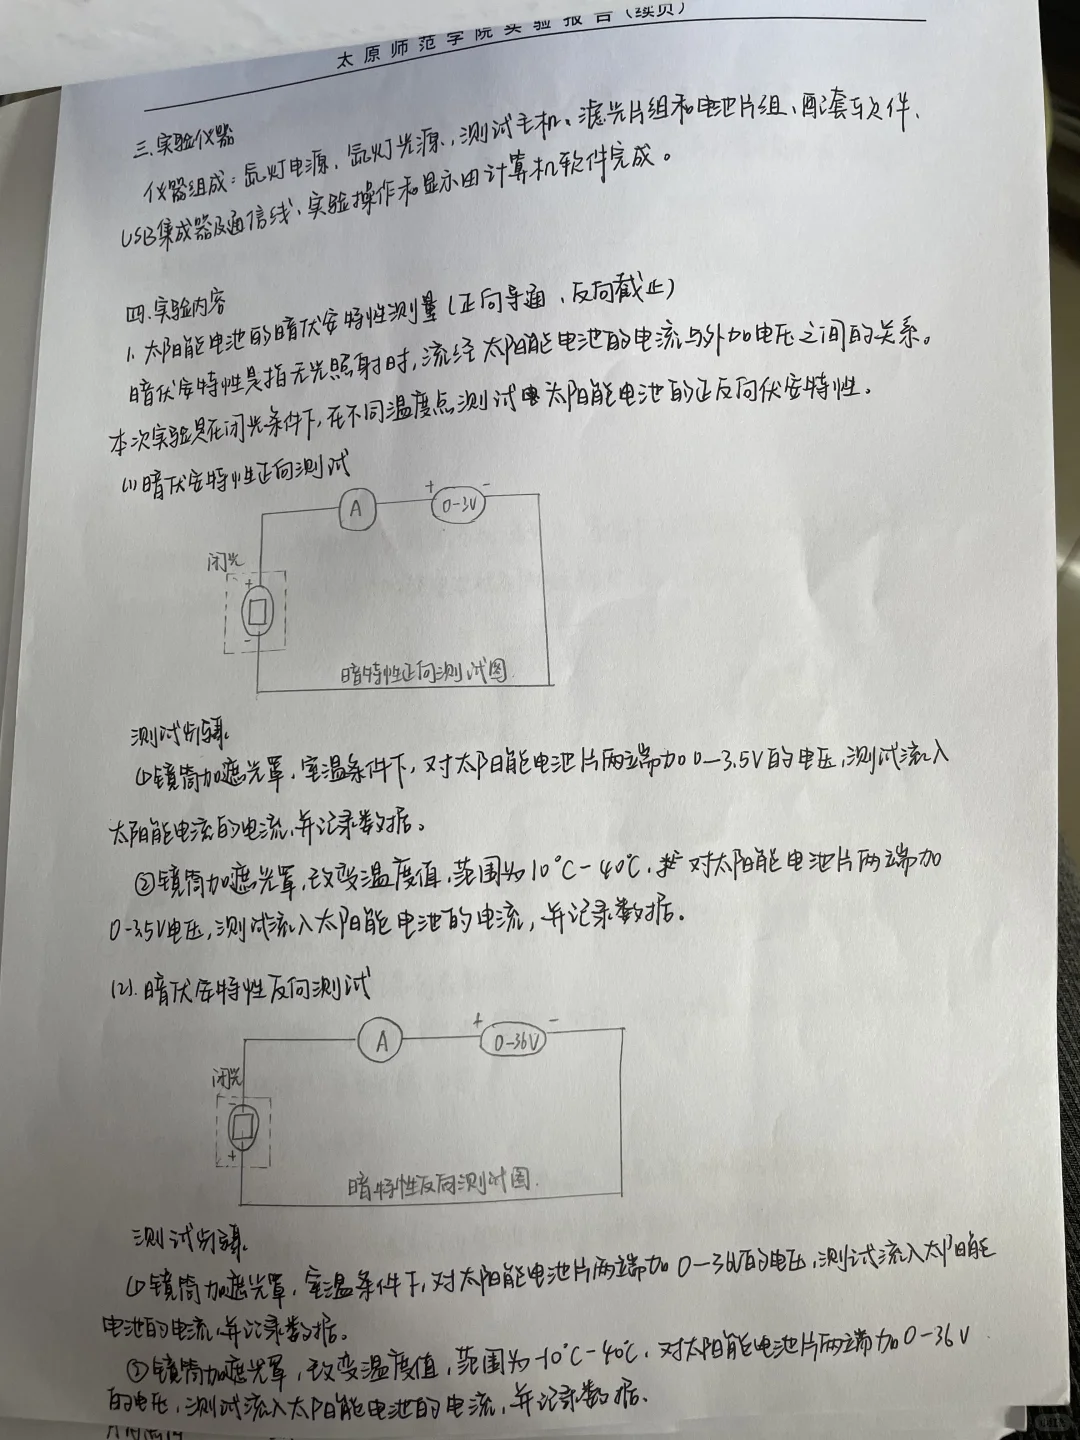 太原师范学院实验报告(续页)
三.实验仪器
仪器组成:氙灯电源、氙灯光源、测试主机、滤光片组和电池片组、配套软件、
USB集成器及通信线、实验操作和显示由计算机软件完成。
四.实验内容
1.太阳能电池的暗伏安特性测量(正向导通、反向截止)
暗伏安特性是指无光照射时,流经太阳能电池的电流与外加电压之间的关系。
本次实验是在闭光条件下,在不同温度点测试太阳能电池的正反向伏安特性。
(1)暗伏安特性正向测试
A
+
0-3V
-
闭光
+
-
暗特性正向测试图
测试步骤.
①镜筒加遮光罩,室温条件下,对太阳能电池片两端加0-3.5V的电压,测试流入
太阳能电流的电流,并记录数据。
②镜筒加遮光罩,改变温度值,范围为10°C-40℃,对太阳能电池片两端加
0-3.5V电压,测试流入太阳能电池的电流,并记录数据。
(2).暗伏安特性反向测试
A
+
0-36V
-
闭光
-
+
暗特性反向测试图.
测试步骤.
①镜筒加遮光罩,室温条件下,对太阳能电池片两端加0-36V的电压,测试流入太阳能
电池的电流,并记录数据。
②镜筒加遮光罩,改变温度值,范围为-10°C-40℃,对太阳能电池片两端加0-36V
的电压,测试流入太阳能电池的电流,并记录数据.